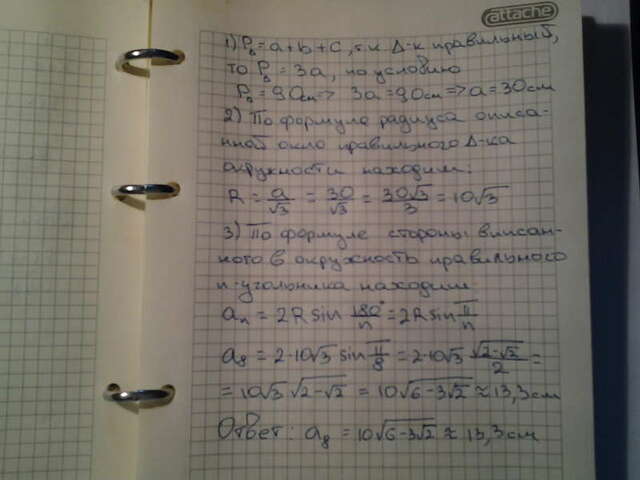 attache
1) P₃ = a + b + c, т.к Δ-к правильный,
то P₃ = 3a, по условию
P₃ = 90см => 3a = 90см => a = 30см
2) По формуле радиуса описан-
ной около правильного Δ-ка
окружности находим:
R = a/√3 = 30/√3 = 30√3/3 = 10√3
3) По формуле стороны вписан-
ного в окружность правильного
n-угольника находим:
aₙ = 2R sin 180°/n = 2R sin π/n
a₈ = 2·10√3 sin π/8 = 2·10√3 √(2-√2)/2 =
= 10√3·√(2-√2) = 10√(6-3√2) ≈ 13,3см
Ответ: a₈ = 10√(6-3√2) ≈ 13,3см